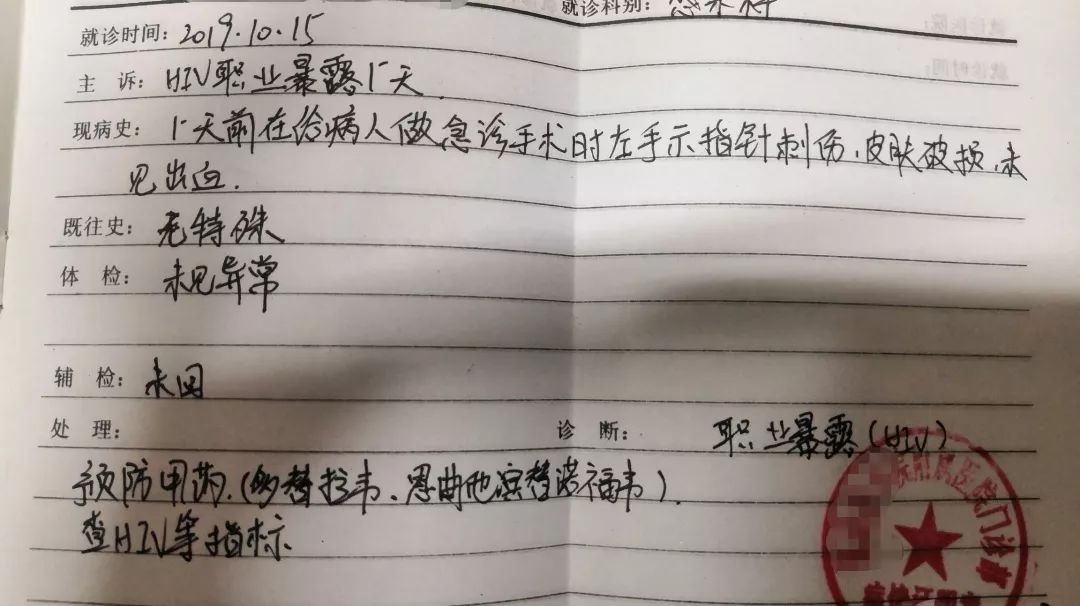 就诊科别：感染科
就诊时间：2019.10.15
主 诉：HIV职业暴露1天.
现病史：1天前在给病人做急诊手术时左手示指针刺伤，皮肤破损，未
见出血.
既往史：无特殊
体 检：未见异常
辅 检：未回
处 理： 诊 断： 职业暴露（HIV）
预防用药.（多替拉韦、恩曲他滨替诺福韦）.
查HIV等指标
附属医院门诊部